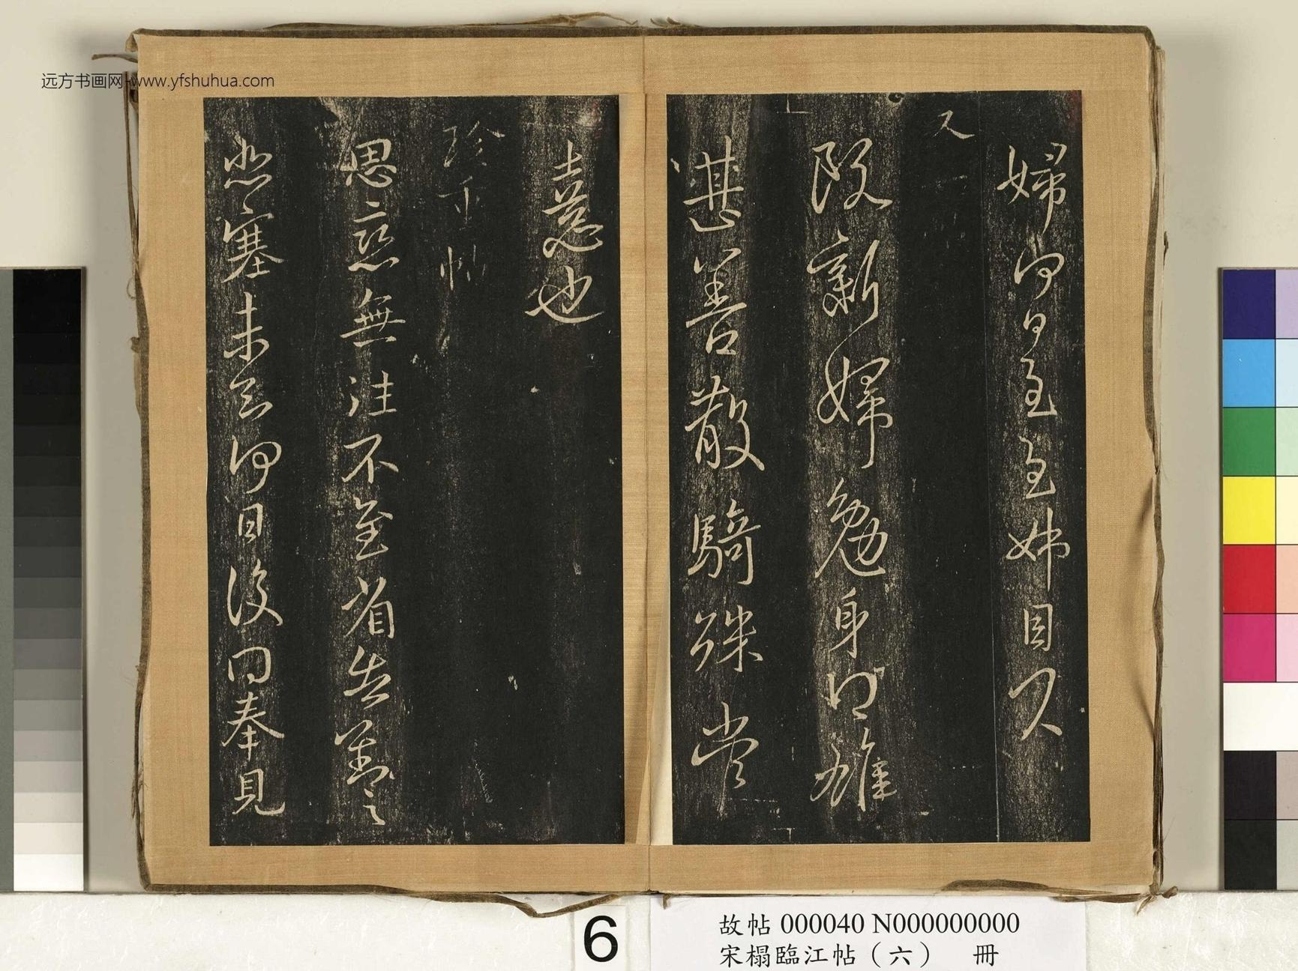 远方书画网 www.yfshuhua.com
婦何日至姊目
又
阮新婦勉身得雄
甚善散騎殊當
憙也
珍重帖
思戀無往不至省告對之
悲塞未知何日復因奉見
6
故帖 000040 N000000000
宋榻臨江帖（六） 冊